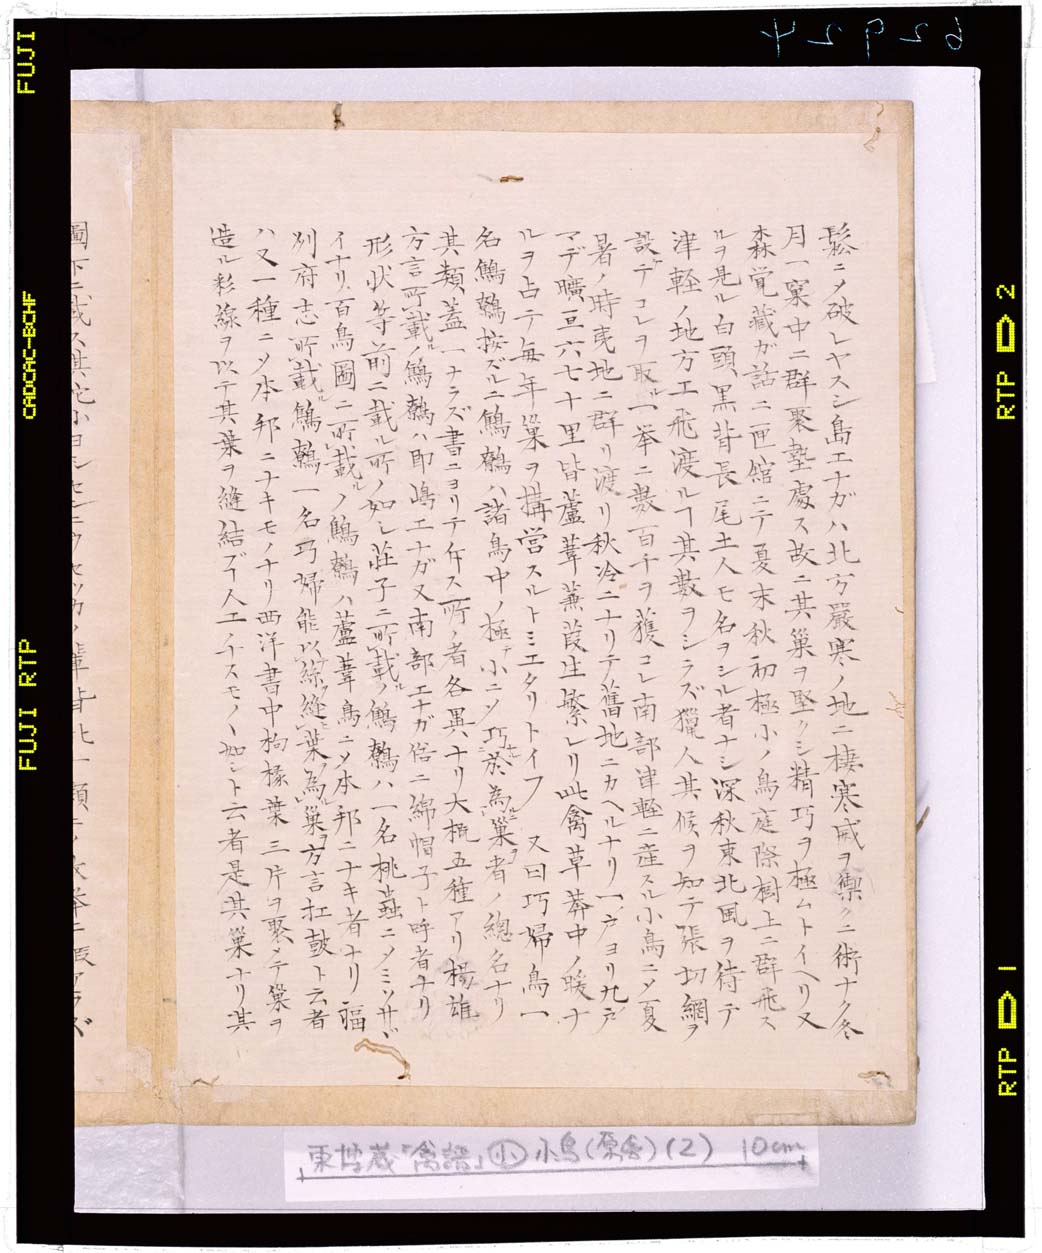 鬆ニメ破レヤスシ島エナガハ北方嚴寒ノ地ニ棲寒威ヲ禦クニ術ナク冬
月一窠中ニ群聚墊處ス故ニ其巢ヲ堅クシ精巧ヲ極ムトイヘリ又
森覚蔵ガ話ニ匣館ニテ夏末秋初極小ノ鳥庭際樹上ニ群飛ス
ルヲ見ル白頭黒背長尾土人モ名ヲシル者ナシ深秋東北風ヲ待テ
津軽ノ地方エ飛渡ルヿ其数ヲシラズ獵人其候ヲ知テ張切網ヲ
設デコレヲ取ル一挙ニ数百千ヲ獲コレ南部津軽ニ産スル小鳥ニメ夏
暑ノ時夷地ニ群リ渡リ秋冷ニナリテ舊地ニカヘルナリ一戸ヨリ九戸
マデ曠亘六七十里皆蘆葦蒹葭生繁レリ此禽草莽中ノ暖ナ
ルヲ占テ毎年巢ヲ構営スルトミエタリトイフ 又曰巧婦鳥一
名鷦鷯按ズルニ鷦鷯ハ諸鳥中ノ極テ小ニメ巧於為巢者ノ總名ナリ
其類蓋一ナラズ書ニヨリテ斥ス所ノ者各異ナリ大概五種アリ楊雄
方言所載ノ鷦鷯ハ即嶋エナガ又南部エナガ俗ニ綿帽子ト呼者ナリ
形状等前ニ載ル所ノ如シ荘子ニ所載ノ鷦鷯ハ一名桃蟲ニメミソサヾ
イナリ百鳥圖ニ所載ルノ鷦鷯ハ蘆葦鳥ニメ本邦ニナキ者ナリ福
州府志所載鷦鷯一名巧婦能以綜縫葉為巢方言扛鼓ト云者
ハ又一種ニメ本邦ニナキモノナリ西洋書中枸櫞葉三片ヲ聚メテ巢ヲ
造ル彩線ヲ以テ其葉ヲ縫結ブヿ人工ノナスモノヽ如シト云者是其巢ナリ其
圖下ニ載ス其他小
東博蔵「禽譜」小 小鳥(原色)(2) 10cm
62924
FUJI
CADCAC-BCHF
FUJI RTP
RTP 2
RTP 1